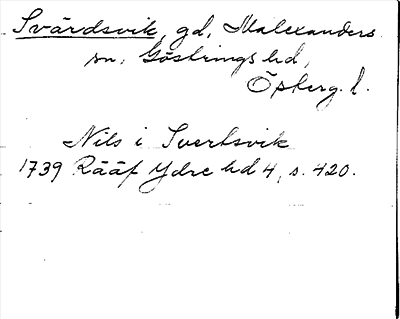 Svärdsvik, gd, Malexanders
sn, Göstrings hd,
Östberg. l.
Nils i Svertsvik
1739 Rääf Ydre hd 4, s. 420.